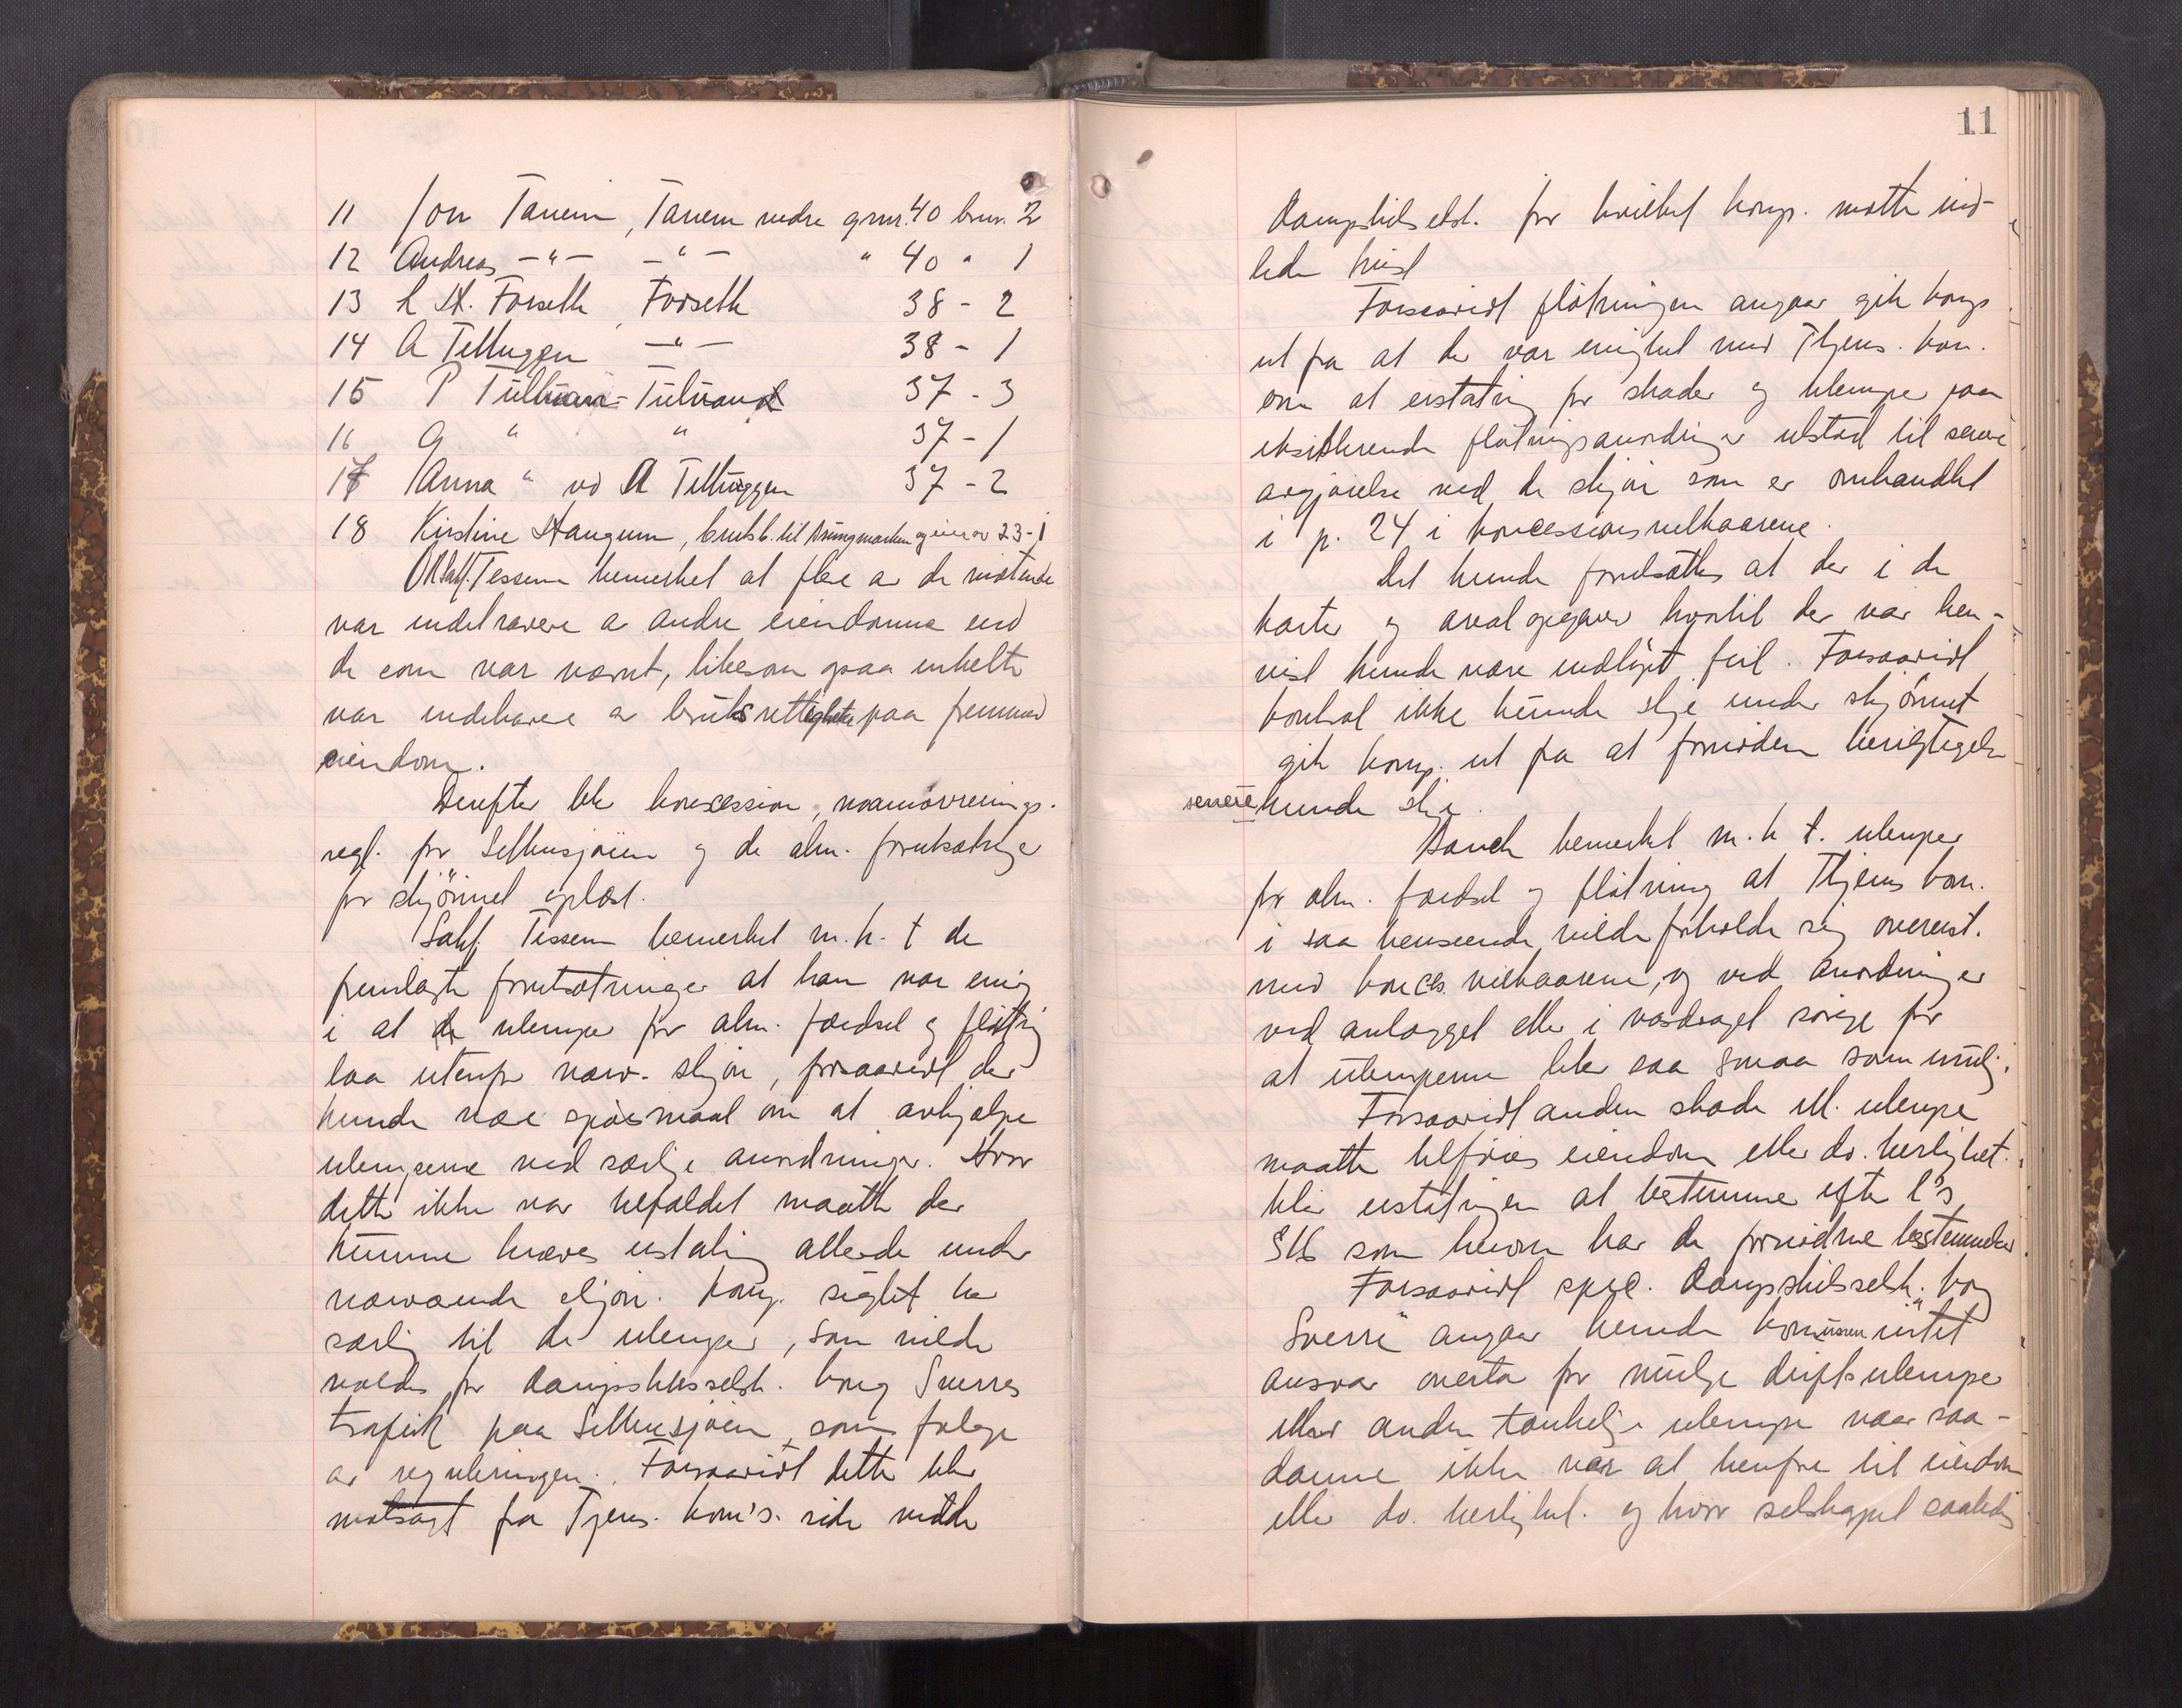 11 Jon Tanem, Tanem nedre grnr. 40 brnr. 2
12 Andreas -"- -"- " 40 " 1
13 L H. Forseth, Forseth 38 - 2
14 A Telluggen -"- 38 - 1
15 P Tulluan - Tuluan 37 - 3
16 G " " 37 - 1
17 Anna " vd A Telluggen 37 - 2
18 Kirstine Haugum, bruksb. til og eier av 23-1
O.R.sakf. Tessem bemerket at flere av de møtende
var indehavere av andre eiendomme end
de som var nævnt, likesom ogsaa enkelte
var indehavere av bruksrettigheter paa fremmed
eiendom.
Derefter blev koncession, manøvrerings-
regl. for Selbusjøen og de alm. forutsætninger
for skjønnet oplæst.
Sakf. Tessem bemerket m.h.t de
fremlagte forutsætninger at han var enig
i at de ulemper for alm. færdsel og fløtning
laa utenfor nærv. skjøn, forsaavidt der
kunde være spørsmaal om at avhjælpe
ulemperne ved særlige anordninger. Hvor
dette ikke var tilfældet maatte der
kunne kræves erstatning allerede under
nærværende skjøn. Komp. sigtet her
særlig til de ulemper, som vilde
voldes for Dampskibsselsk. Kong Sverres
trafik paa Selbusjøen, som følge
av reguleringen. Forsaavidt dette blev
motsagt fra Tjens. kom's. side vedde
11
Dampskibsselsk. for hvilket komp. møtte ind-
lede tvist
Forsaavidt fløtningen angaar gik komp
ut fra at der var enighet med Thjens. kom.
om at erstatning for skader og ulemper paa
eksisterende fløtningsanordninger utstod til senere
avgjørelse ved de skjøn som er omhandlet
i p. 24 i koncessionsvilkaarene.
Det kunde forutsættes at der i de
karter og arealopgaver hvortil der var hen-
vist kunde være indløpet feil. Forsaavidt
kontrol ikke kunde skje under skjønnet
gik komp. ut fra at fornøden berigtigelse
senere kunde skje.
bemerket m.h.t. ulemper
for alm. færdsel og fløtning at Thjens kom.
i saa henseende vilde forholde sig overenst.
med konces. vilkaarene, og ved anordninger
ved anlægget eller i vasdraget sørge for
at ulemperne blev saa smaa som mulig.
Forsaavidt anden skade ell. ulempe
maatte tilføies eiendom eller do. herlighet.
blir erstatningen at bestemme efter l's
§16 som herom har de fornødne bestemmelser.
Forsaavidt spec. Dampskibsselsk. "Kong
Sverre" angaar kunde kommunen intet
ansvar overta for mulige driftsulemper
eller anden tænkelig ulempe naar saa-
danne ikke var at henføre til eiendom
eller do. herlighet. og hvor selskapet saaledes